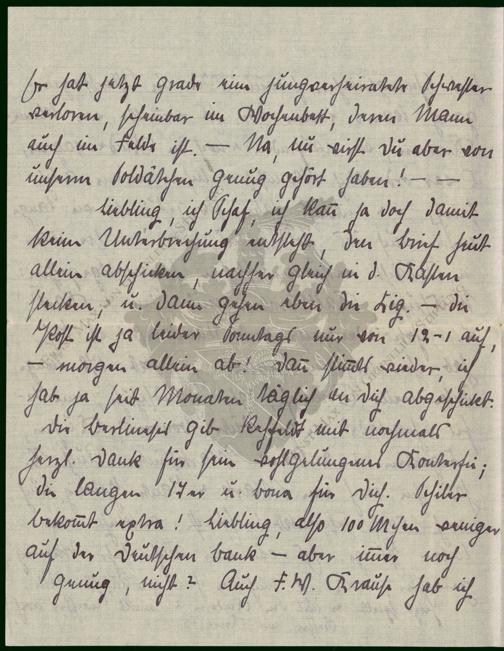 Er hat jetzt grade eine jungverheiratete Schwester
verloren, scheinbar im Wochenbett, deren Mann
auch im Felde ist. — Na, nu wirst Du aber von
unserm Soldätchen genug gehört haben! — —
Liebling, ich Schaf, ich kan̄ ja doch damit
keine Unterbrechung entsteht, den Brief heut
allein abschicken, nachher gleich in d. Kasten
stecken, u. dann gehen eben die Zig. — die
Post ist ja leider Sonntags nur von 12-1 auf,
— morgen allein ab! Dan̄ stimts wieder, ich
hab ja seit Monaten täglich an Dich abgeschickt.
Die Berliner gib mit nochmals
herzl. Dank für sein wohlgelungenes Konterfei;
die langen 17er u. bona für Dich. Schiler
bekom̄t extra! Liebling, also 100 Mchen weniger
auf der Deutschen Bank — aber im̄er noch
genug, nicht? Auch F. W. Krause hab ich